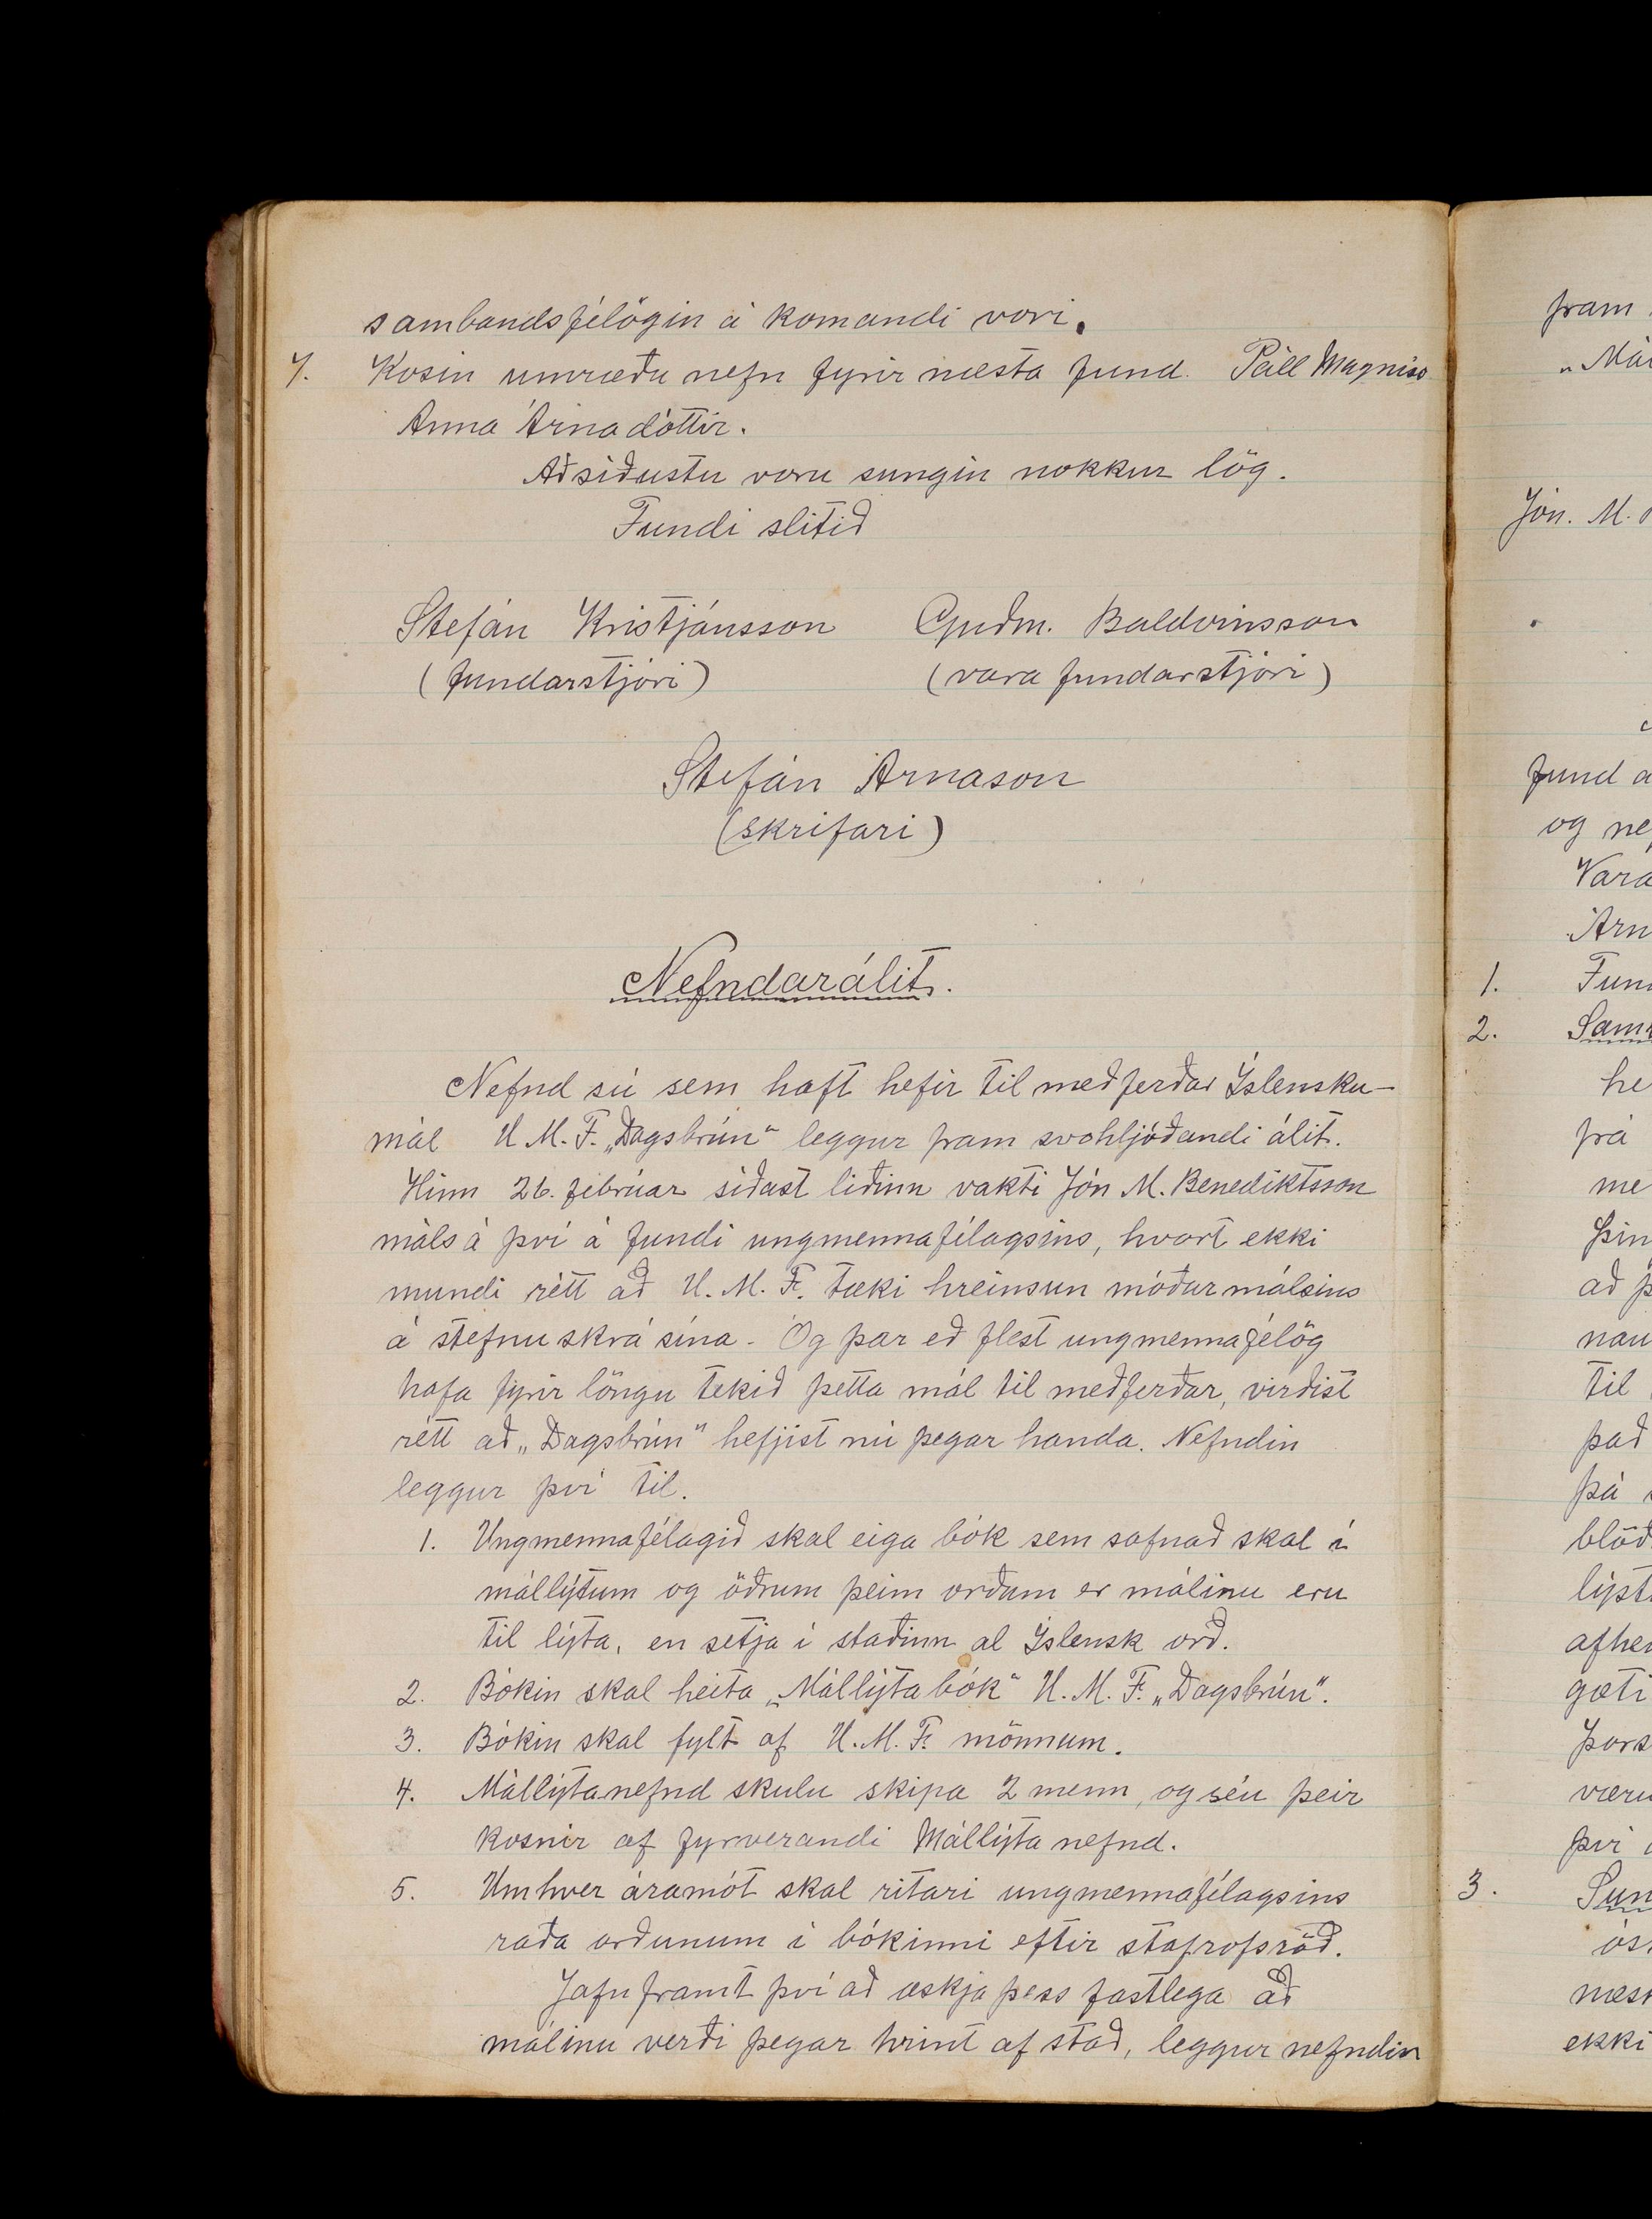 sambandsfélögin á komandi vori.
7. Kosin umræðu nefn fyrir næsta fund. Páll Magnúss
Anna Árnadóttir.
Að síðustu voru sungin nokkur lög.
Fundi slitið
Stefán Kristjánsson Guðm. Baldvinsson
(fundarstjóri) (vara fundarstjóri)
Stefán Árnason
(skrifari)
Nefndarálit.
Nefnd sú sem haft hefir til meðferðar Íslensku-
mál U.M.F. „Dagsbrún“ leggur fram svohljóðandi álit.
Hinn 26. febrúar síðast liðinn vakti Jón M. Benediktsson
máls á því á fundi ungmennafélagsins, hvort ekki
mundi rétt að U.M.F. tæki hreinsun móðurmálsins
á stefnuskrá sína. Og þar eð flest ungmennafélög
hafa fyrir löngu tekið þetta mál til meðferðar, virðist
rétt að „Dagsbrún“ hefjist nú þegar handa. Nefndin
leggur því til.
1. Ungmennafélagið skal eiga bók sem safnað skal í
mállýtum og öðrum þeim orðum er málinu eru
til lýta, en setja í staðinn al Íslensk orð.
2. Bókin skal heita „Mállýta bók“ U.M.F. „Dagsbrún“.
3. Bókin skal fylt af U.M.F. mönnum.
4. Mállýtanefnd skulu skipa 2 menn, og séu þeir
kosnir af fyrverandi Mállýta nefnd.
5. Um hver áramót skal ritari ungmennafélagsins
raða orðunum í bókinni eftir stafrofsröð.
Jafnframt því að æskja þess fastlega að
málinu verði þegar hrint af stað, leggur nefndin
fram
Jón. M.
fund
og
1.
2.
he
frá
me
að
til
það
þá
því
3.
ekki